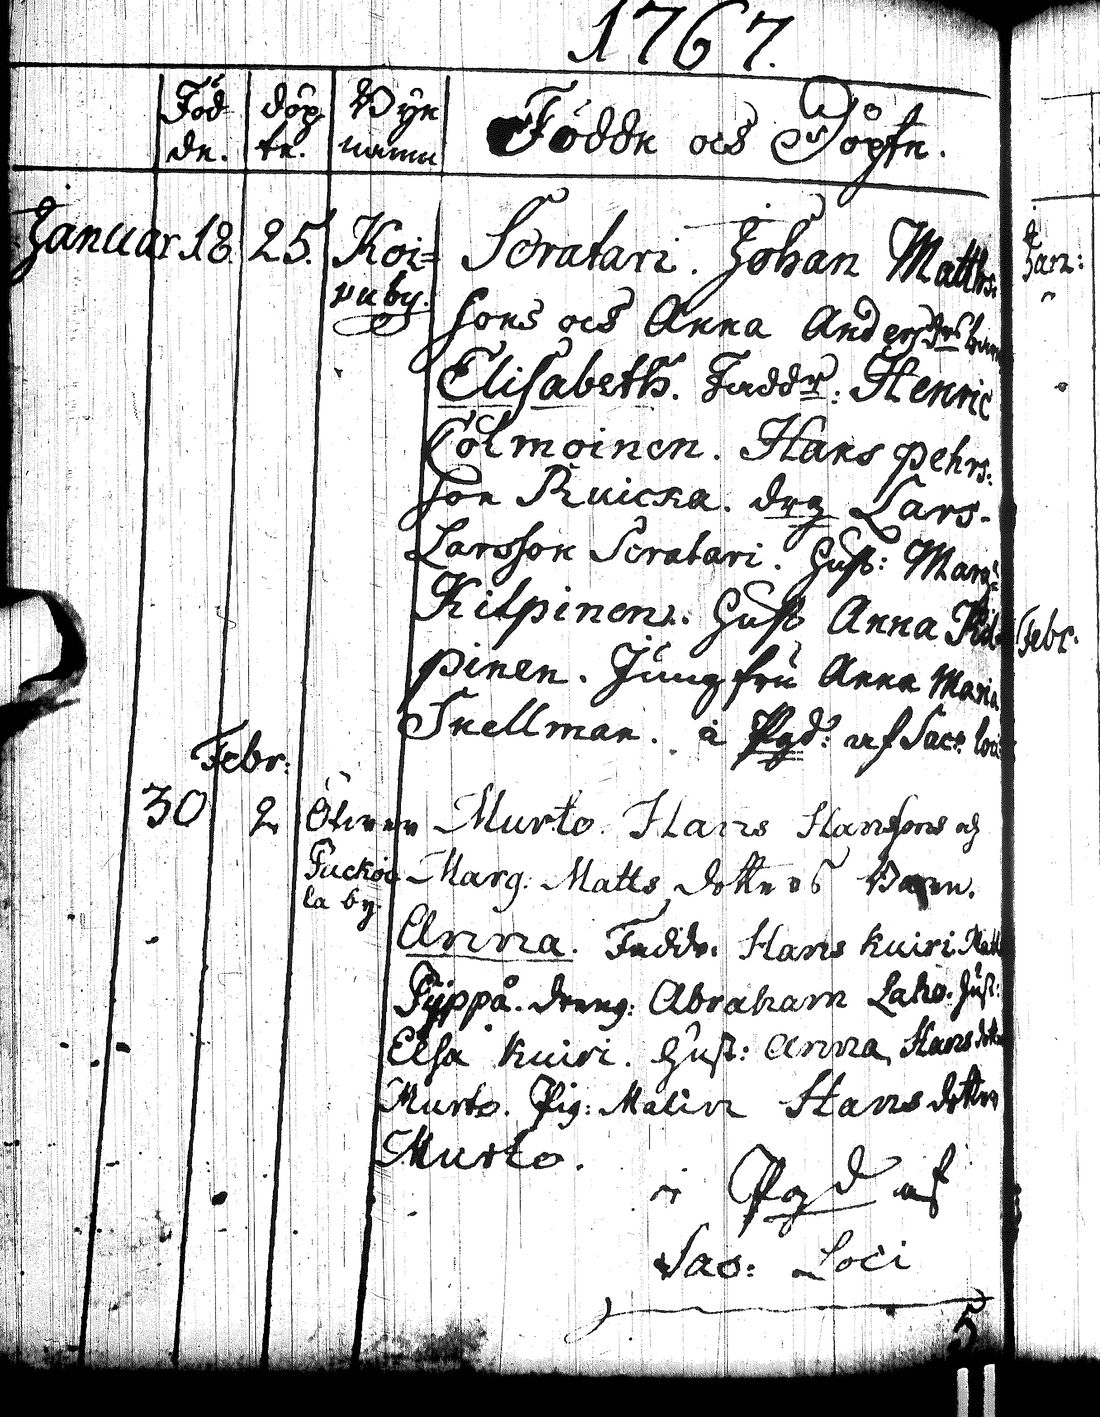 1767.
Föd
de.
döp
te.
Byn
namn
Födde och Döpte.
Januar. 18. 25. Koi=
vu by.
Scratari. Johan Matths:
sons och Anna Anders
Elisabeth. Faddr: Henric
Colmoinen. Hans Pehrs:
son Ruicka. drg Lars
Larsson Scratari. Hust: Marg:
Kilpinen. Hust Anna Kil
pinen. Jungfru Anna Maria
Snellman. à Pgd: af Sac: loci
Febr:
30 2
Puckoi
la by
Murto. Hans Hansons och
Marg: Matts dotters Barn.
Anna. Faddr: Hans Kuiri
Pyppä. dreng: Abraham Laho. Hust:
Elsa Kuiri. Hust: Anna Hans dotter
Murto. Pig: Malin Hans dotter
Murto.
à Pgd af
Sac: Loci
5
Jan:
Febr.